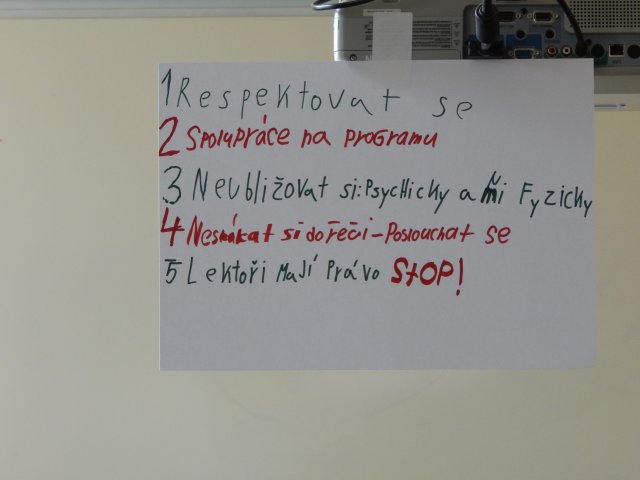 1 Respektovat se
2 Spolupráce na programu
3 Neubližovat si: Psychicky a ni Fyzicky
4 Neskákat si do řeči - Poslouchat se
5 Lektoři mají právo STOP!